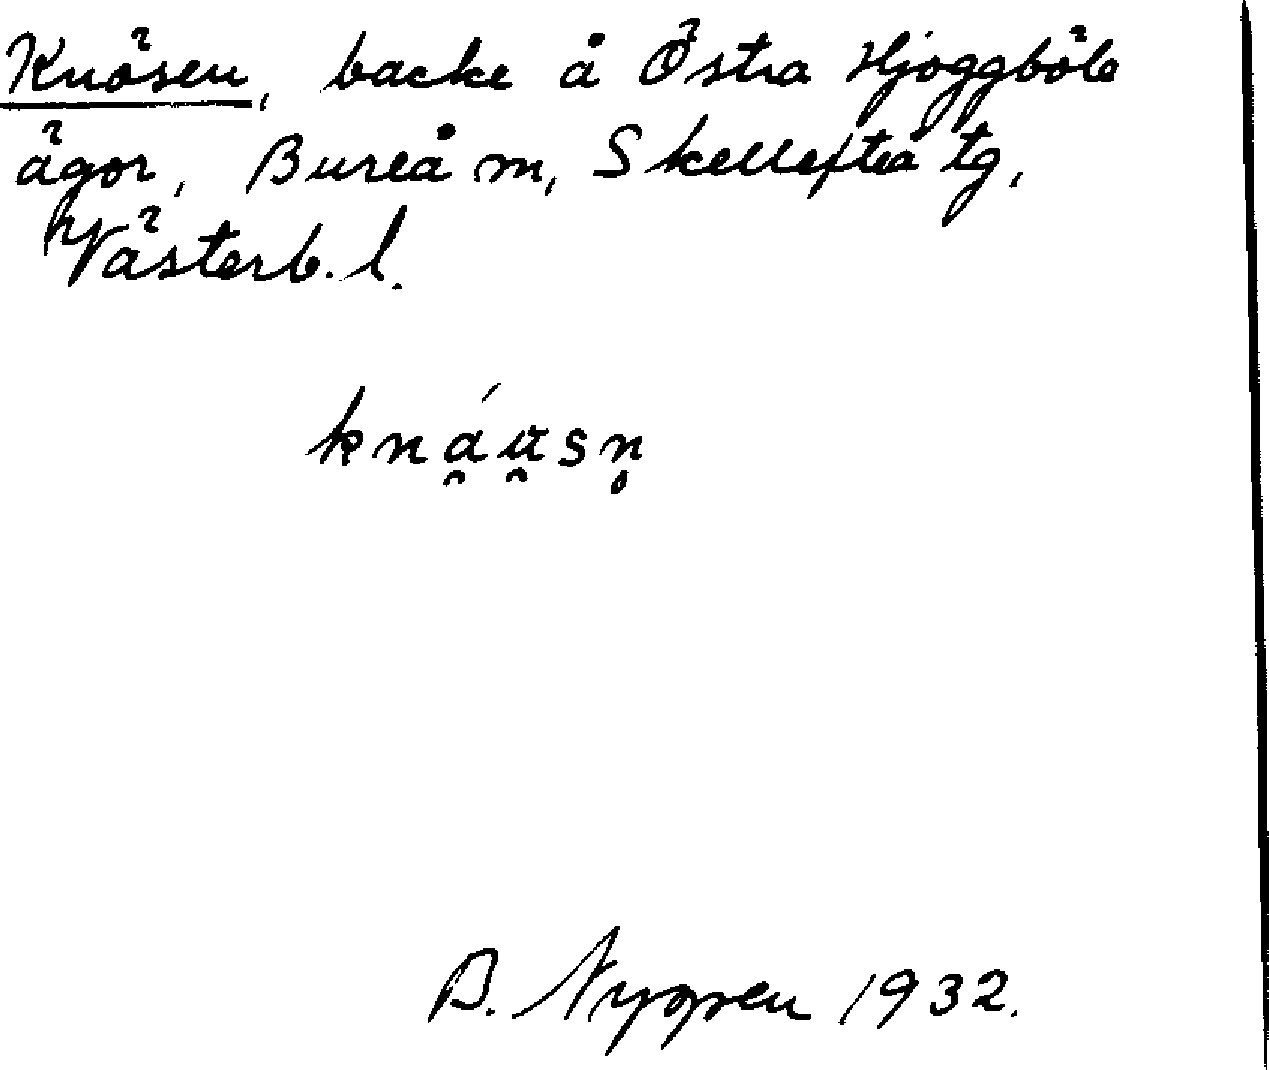 Knösen, backe å Östra Hjoggböle
ägor, Bureå m, Skellefteå tg,
Västerb. l.
kná̯u̯sn̥
B. Nygren 1932.